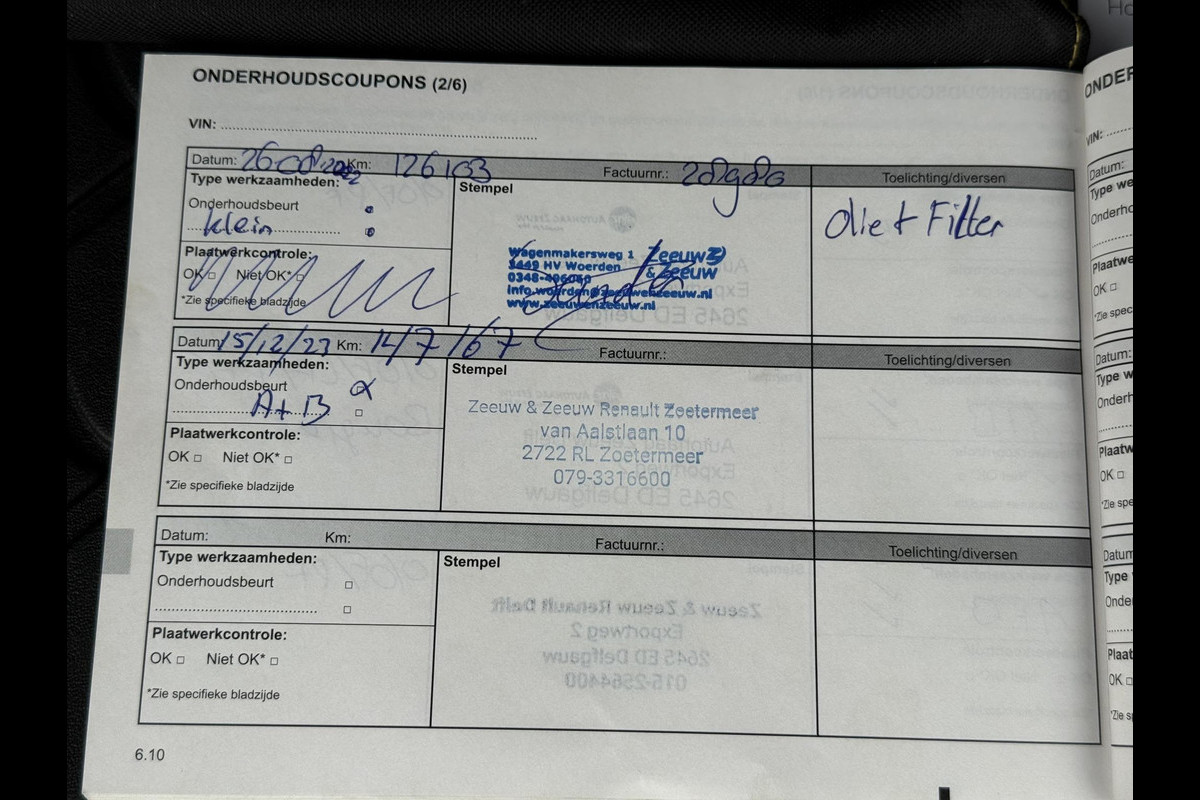 ONDERHOUDSCOUPONS (2/6)
VIN:
Datum: 26-08-2022 Km: 126103 Factuurnr.: 289980 Toelichting/diversen
Type werkzaamheden:
Stempel
Onderhoudsbeurt
klein
Olie + Filter
Plaatwerkcontrole:
OK □ Niet OK* □
*Zie specifieke bladzijde
Wagenmakersweg 1
3449 HV Woerden
0348-
www.zeeuwenzeeuw.nl
Zeeuw
& Zeeuw
Datum: 15/12/23 Km: 147167 Factuurnr.: Toelichting/diversen
Type werkzaamheden:
Stempel
Onderhoudsbeurt
A+B
Plaatwerkcontrole:
OK □ Niet OK* □
*Zie specifieke bladzijde
Zeeuw & Zeeuw Renault Zoetermeer
van Aalstlaan 10
2722 RL Zoetermeer
079-3316600
Datum: Km: Factuurnr.: Toelichting/diversen
Type werkzaamheden:
Stempel
Onderhoudsbeurt □
□
Plaatwerkcontrole:
OK □ Niet OK* □
*Zie specifieke bladzijde
6.10
VIN:
Datum:
Onderho
OK □
Datum:
OK □
OK □